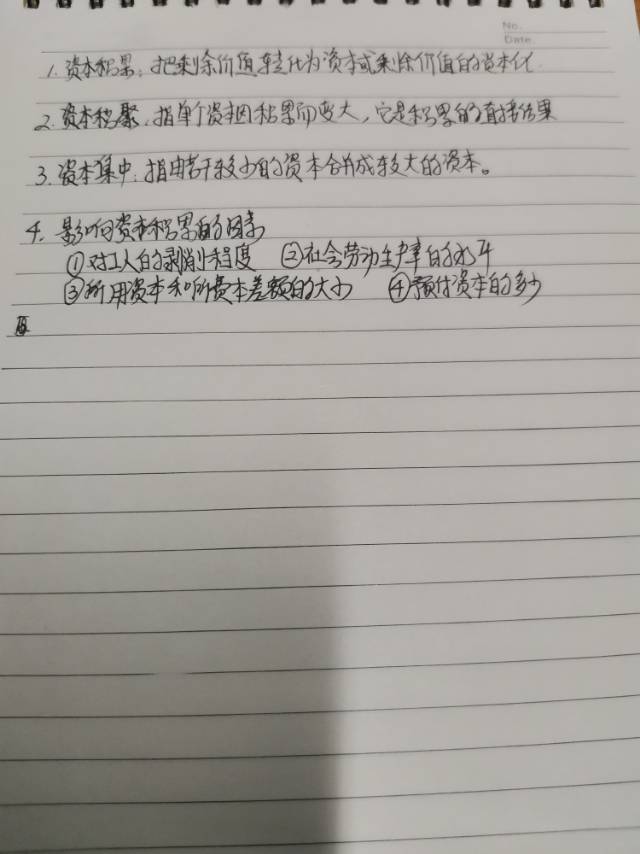 No.
Date.
1. 资本积累：把剩余价值转化为资本或剩余价值的资本化
2. 资本积聚：指单个资本因积累而变大，它是积累的直接结果
3. 资本集中：指由若干较少的资本合并成较大的资本。
4. 影响资本积累的因素
①对工人的剥削程度 ②社会劳动生产率的水平
③所用资本和所费本差额的大小 ④预付资本的多少